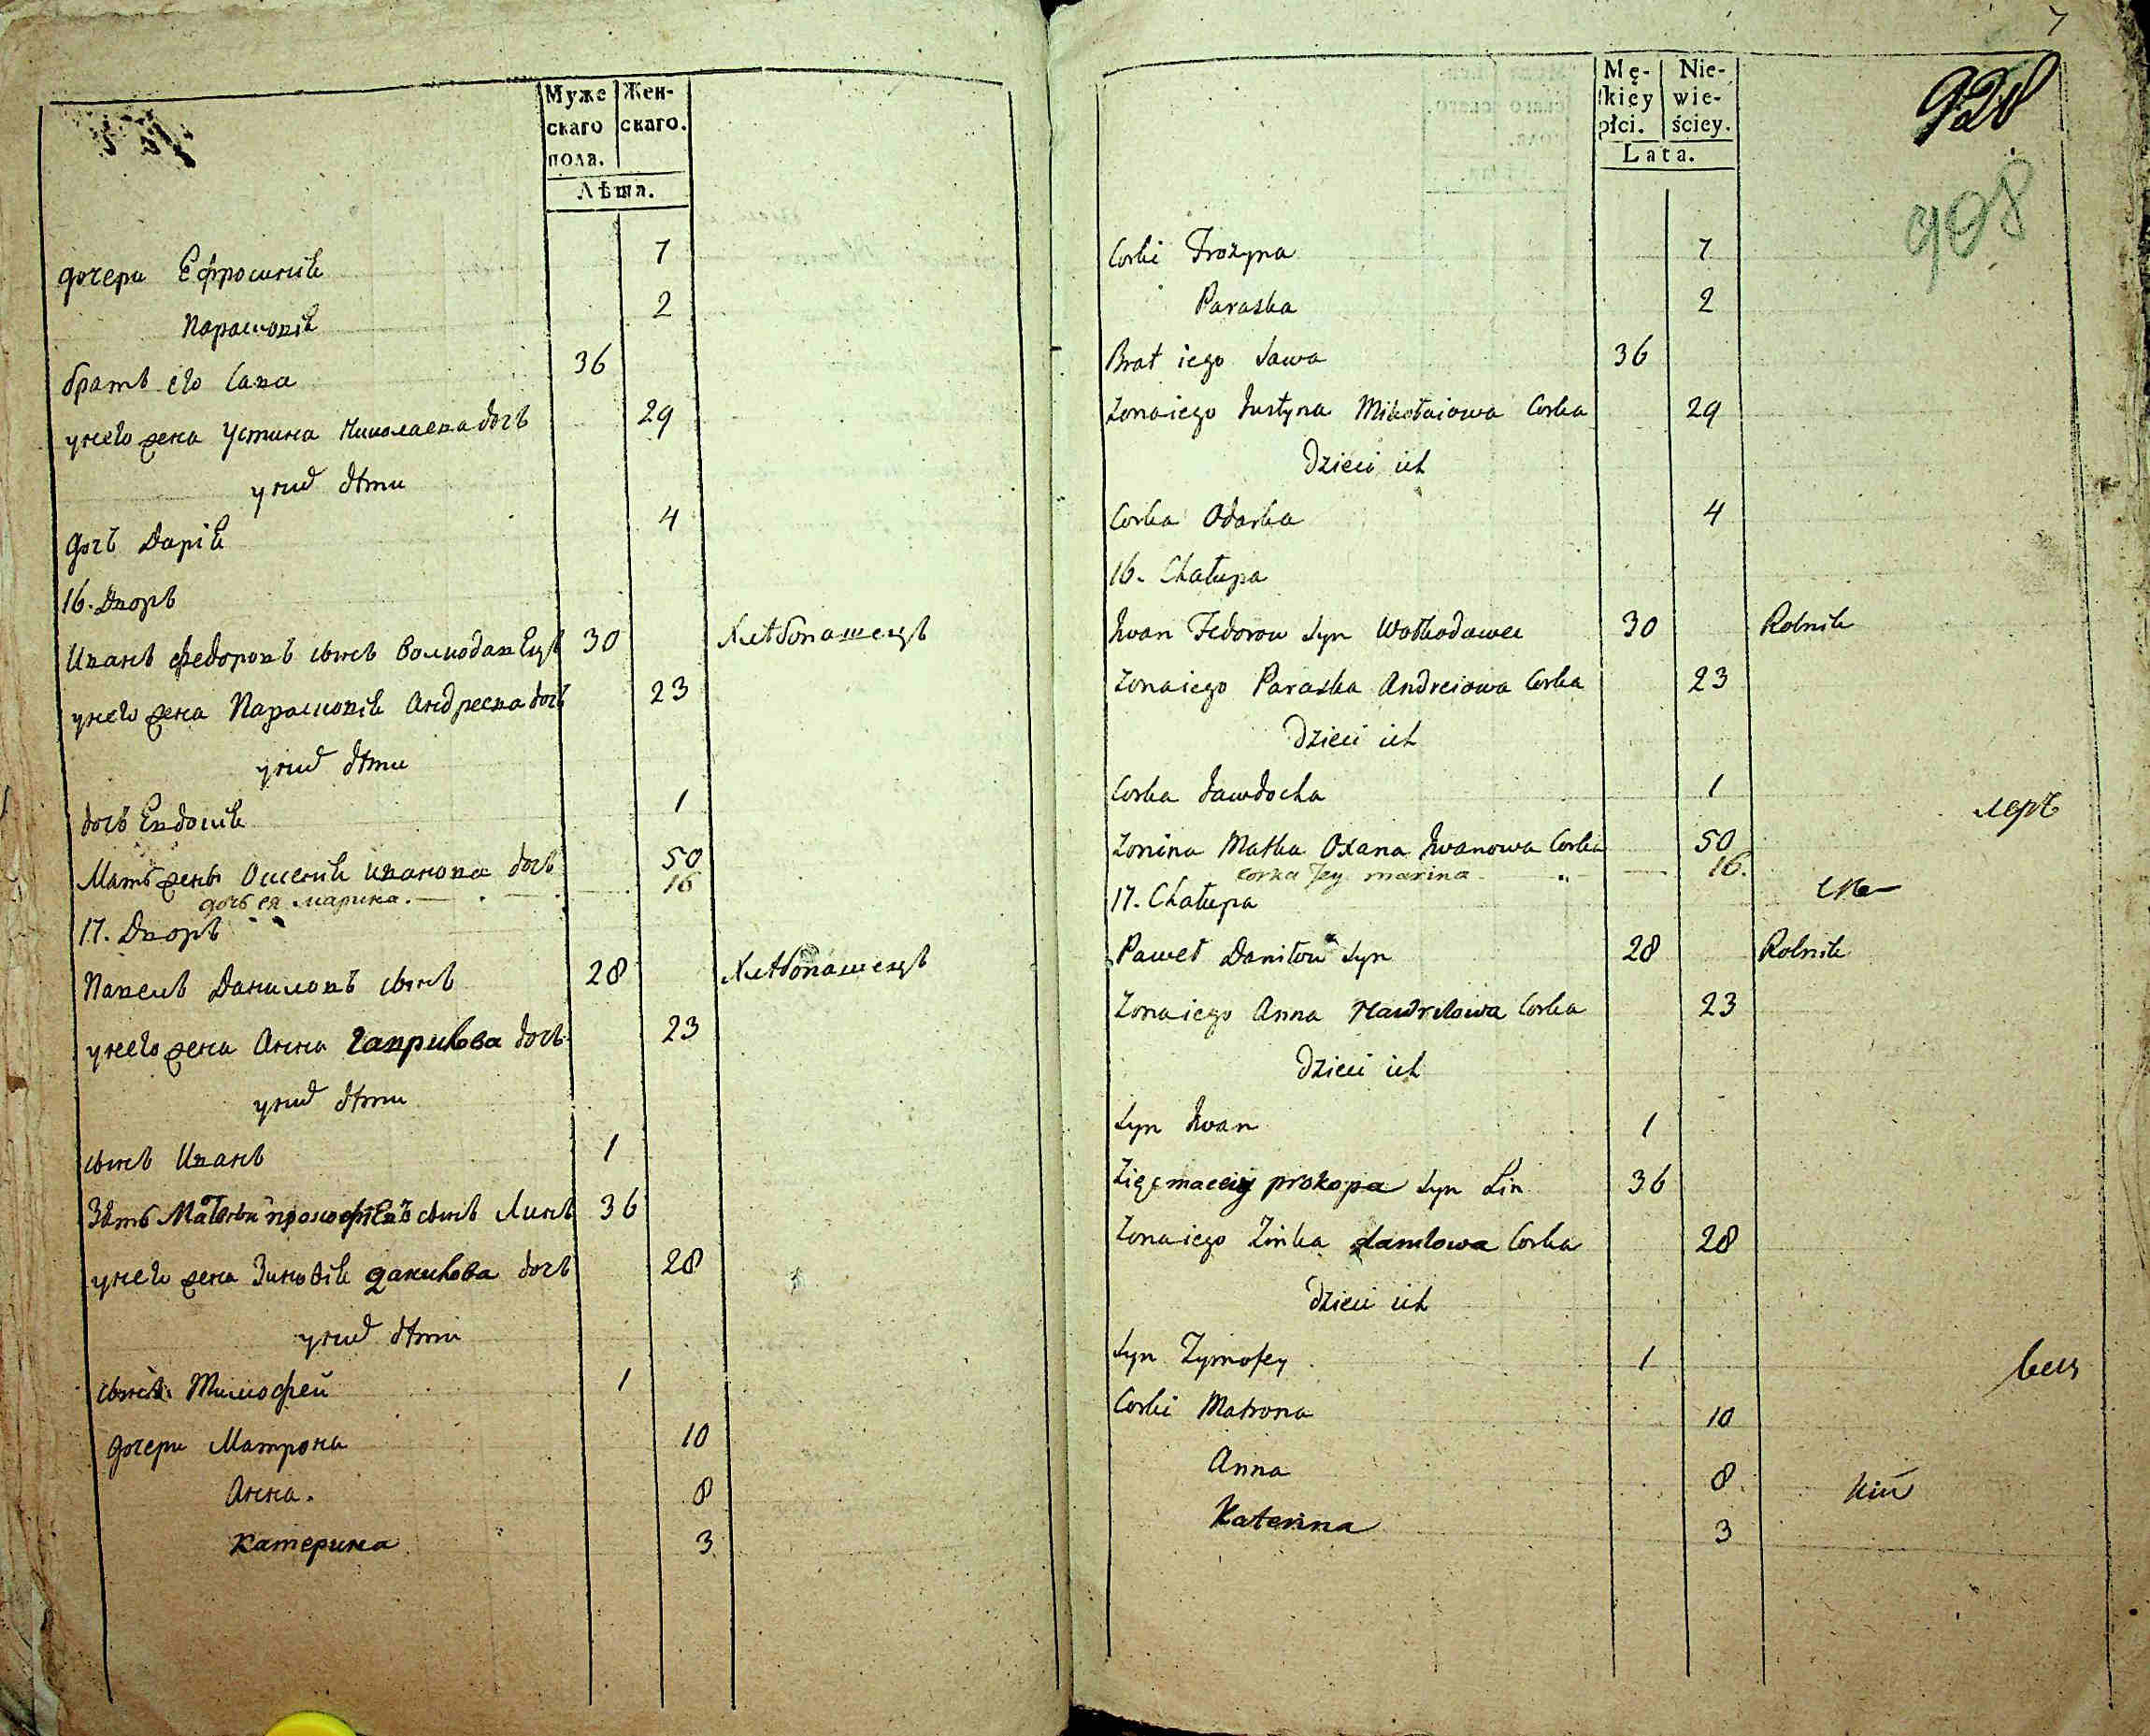 Муже Жен-
скаго скаго.
пола.
Лѣта.
дочери Ефросинія 7
Парасковія 2
братъ его Сава 36
у него жена Устина Николаева дочь 29
у них дѣти
дочь Дарія 4
16. Дворъ
Иванъ Федоровъ сынъ Волкодавецъ 30 Хлѣбопашецъ
у него жена Парасковія Андреева дочь 23
у них дѣти
дочь Евдокія 1
Мать жены Оксенія Иванова дочь 50
дочь ея марина. 16
17. Дворъ
Павелъ Даниловъ сынъ 28 Хлѣбопашецъ
у него жена Анна Гаврилова дочь 23
у них дѣти
сынъ Иванъ 1
Зять Матвѣй прокофіевъ сынъ Линъ 36
у него жена Зиновія данилова дочь 28
у них дѣти
сынъ Тимофей 1
дочери Матрона 10
Анна. 8
Катерина 3
7
Mę- Nie-
skiey wie-
płci. ściey.
Lata.
928
908
Corki Frozyna 7
Paraska 2
Brat iego Sawa 36
Zona iego Justyna Mikołaiowa Corka 29
Dzieci ich
Corka Odarka 4
16. Chałupa
Iwan Fedorow Syn Wołkodawec 30 Rolnik
Zona iego Paraska Andreiowa Corka 23
Dzieci ich
Corka Jawdocha 1
Zonina Matka Oxana Iwanowa Corka 50
corka Jey marina 16.
17. Chałupa
Paweł Daniłow Syn 28 Rolnik
Zona iego Anna Hawryłowa Corka 23
Dzieci ich
Syn Iwan 1
Zięć maciey prokopa Syn Lin 36
Zona iego Zinka daniłowa Corka 28
dzieci ich
Syn Tymofey 1
Corki Matrona 10
Anna 8
Katerina 3